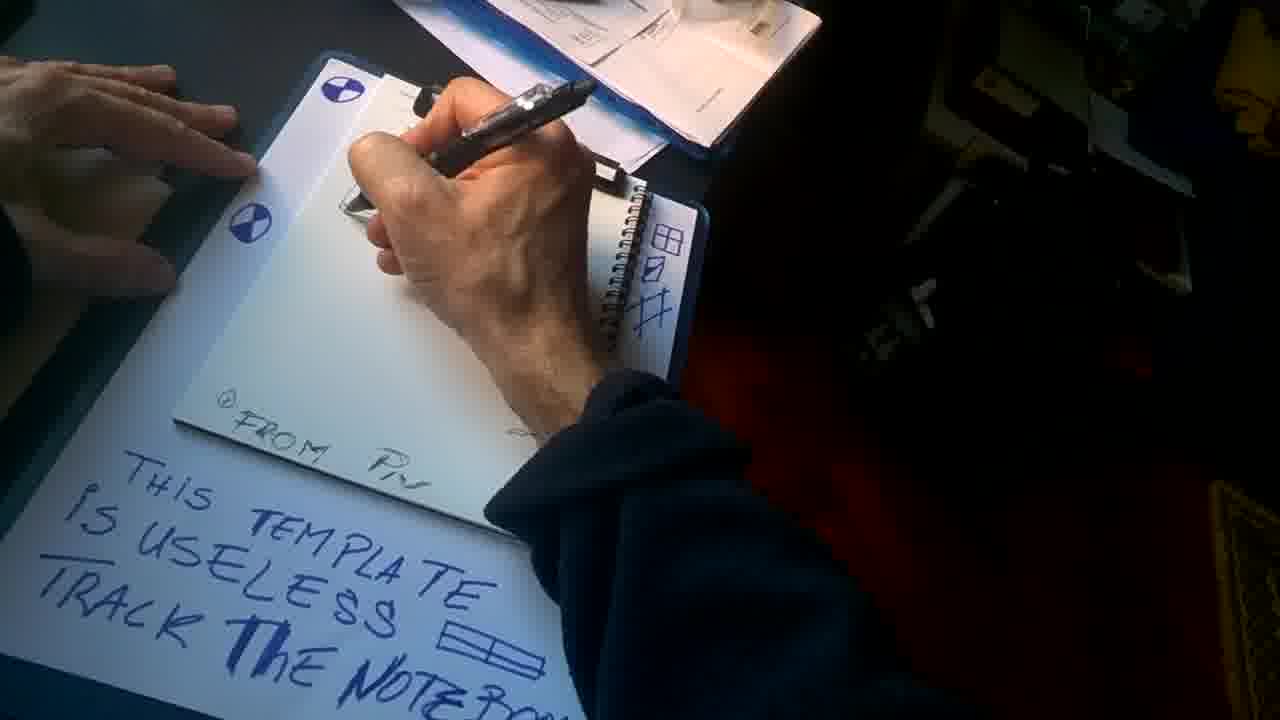 FROM
THIS TEMPLATE
IS USELESS
TRACK THE NOTEBO